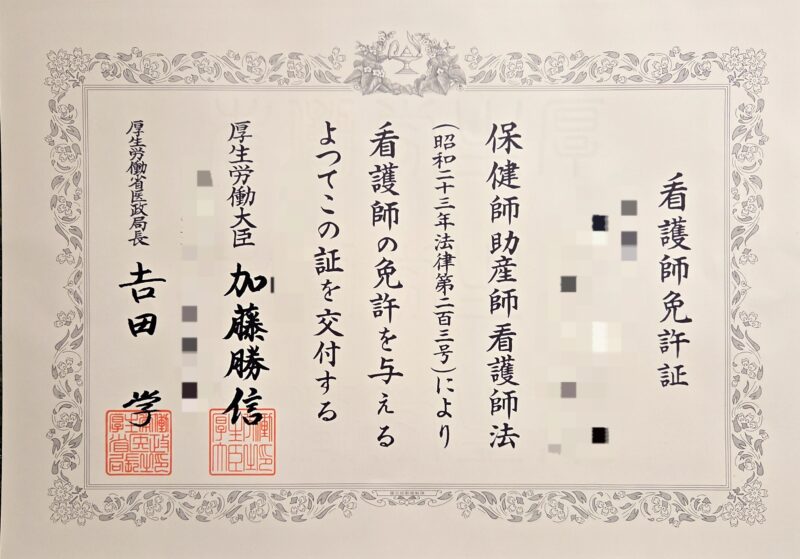 看護師免許証
保健師助産師看護師法
(昭和二十三年法律第二百三号)により
看護師の免許を与える
よつてこの証を交付する
厚生労働大臣 加藤勝信
厚生労働省医政局長 吉田 学